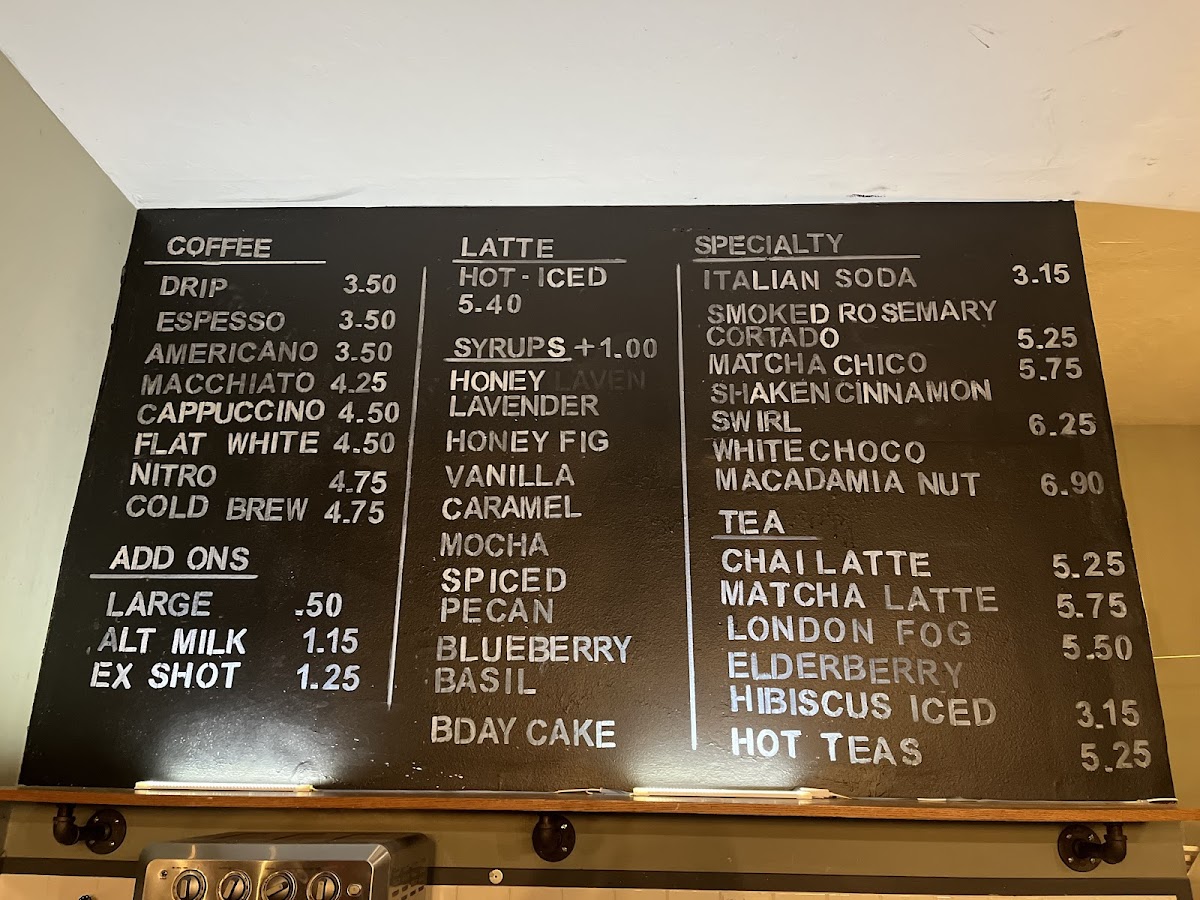 COFFEE
DRIP 3.50
ESPESSO 3.50
AMERICANO 3.50
MACCHIATO 4.25
CAPPUCCINO 4.50
FLAT WHITE 4.50
NITRO 4.75
COLD BREW 4.75
ADD ONS
LARGE .50
ALT MILK 1.15
EX SHOT 1.25
LATTE
HOT-ICED
5.40
SYRUPS +1.00
HONEY LAVEN
LAVENDER
HONEY FIG
VANILLA
CARAMEL
MOCHA
SPICED
PECAN
BLUEBERRY
BASIL
BDAY CAKE
SPECIALTY
ITALIAN SODA 3.15
SMOKED ROSEMARY
CORTADO 5.25
MATCHA CHICO 5.75
SHAKEN CINNAMON
SWIRL 6.25
WHITE CHOCO
MACADAMIA NUT 6.90
TEA
CHAI LATTE 5.25
MATCHA LATTE 5.75
LONDON FOG 5.50
ELDERBERRY
HIBISCUS ICED 3.15
HOT TEAS 5.25